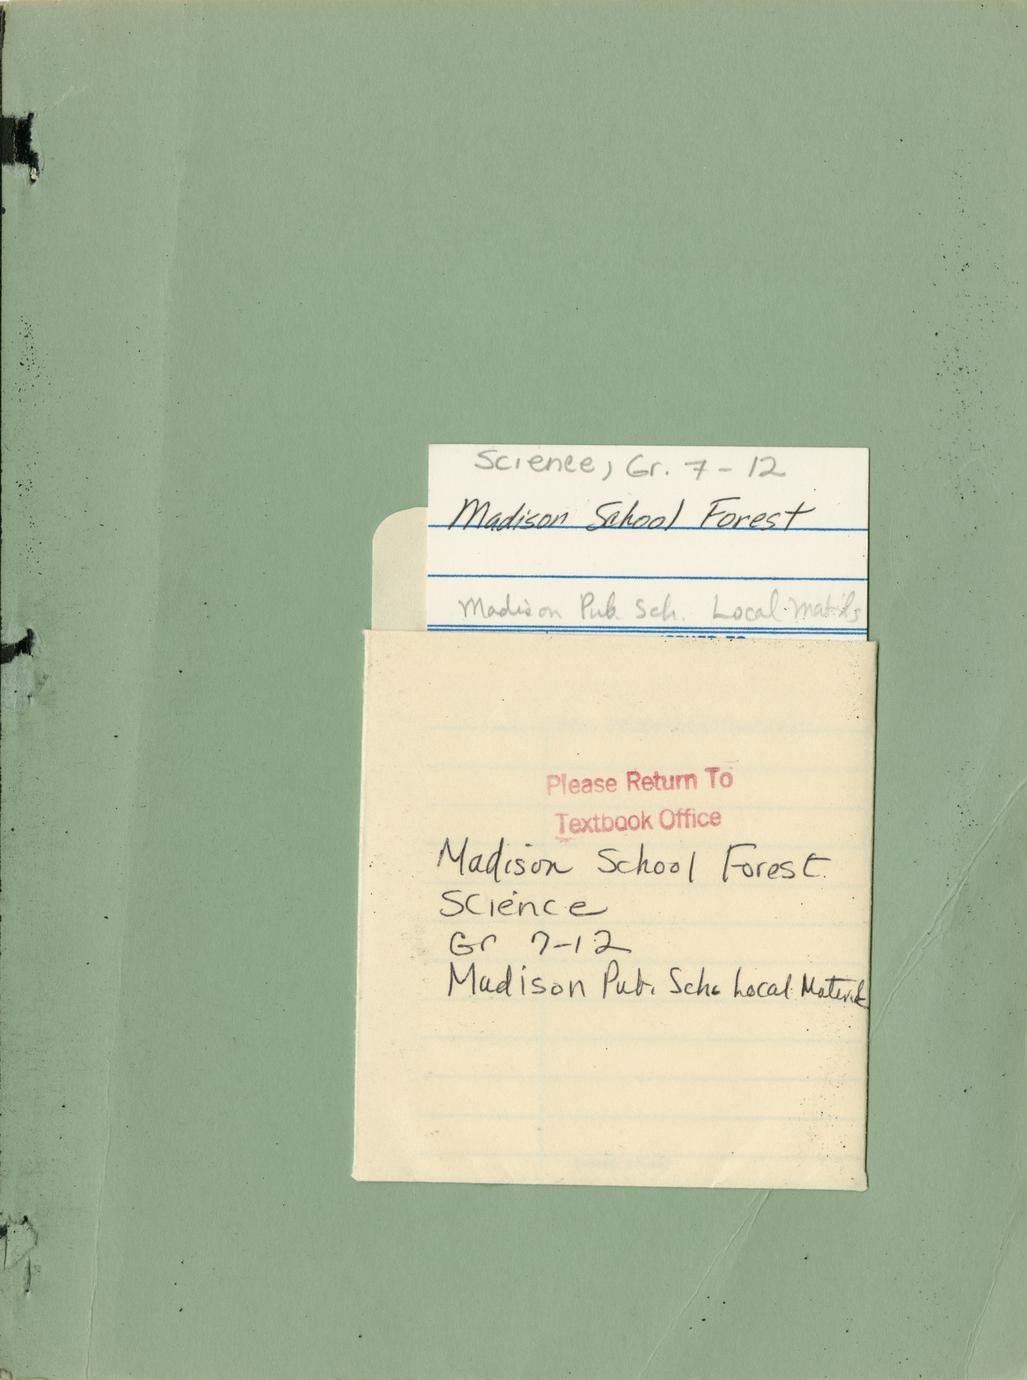 Science, Gr. 7-12
Madison School Forest
Madison Pub. Sch. Local Mat'ls
Please Return To
Textbook Office
Madison School Forest
Science
Gr 7-12
Madison Pub. Sch. Local Materials